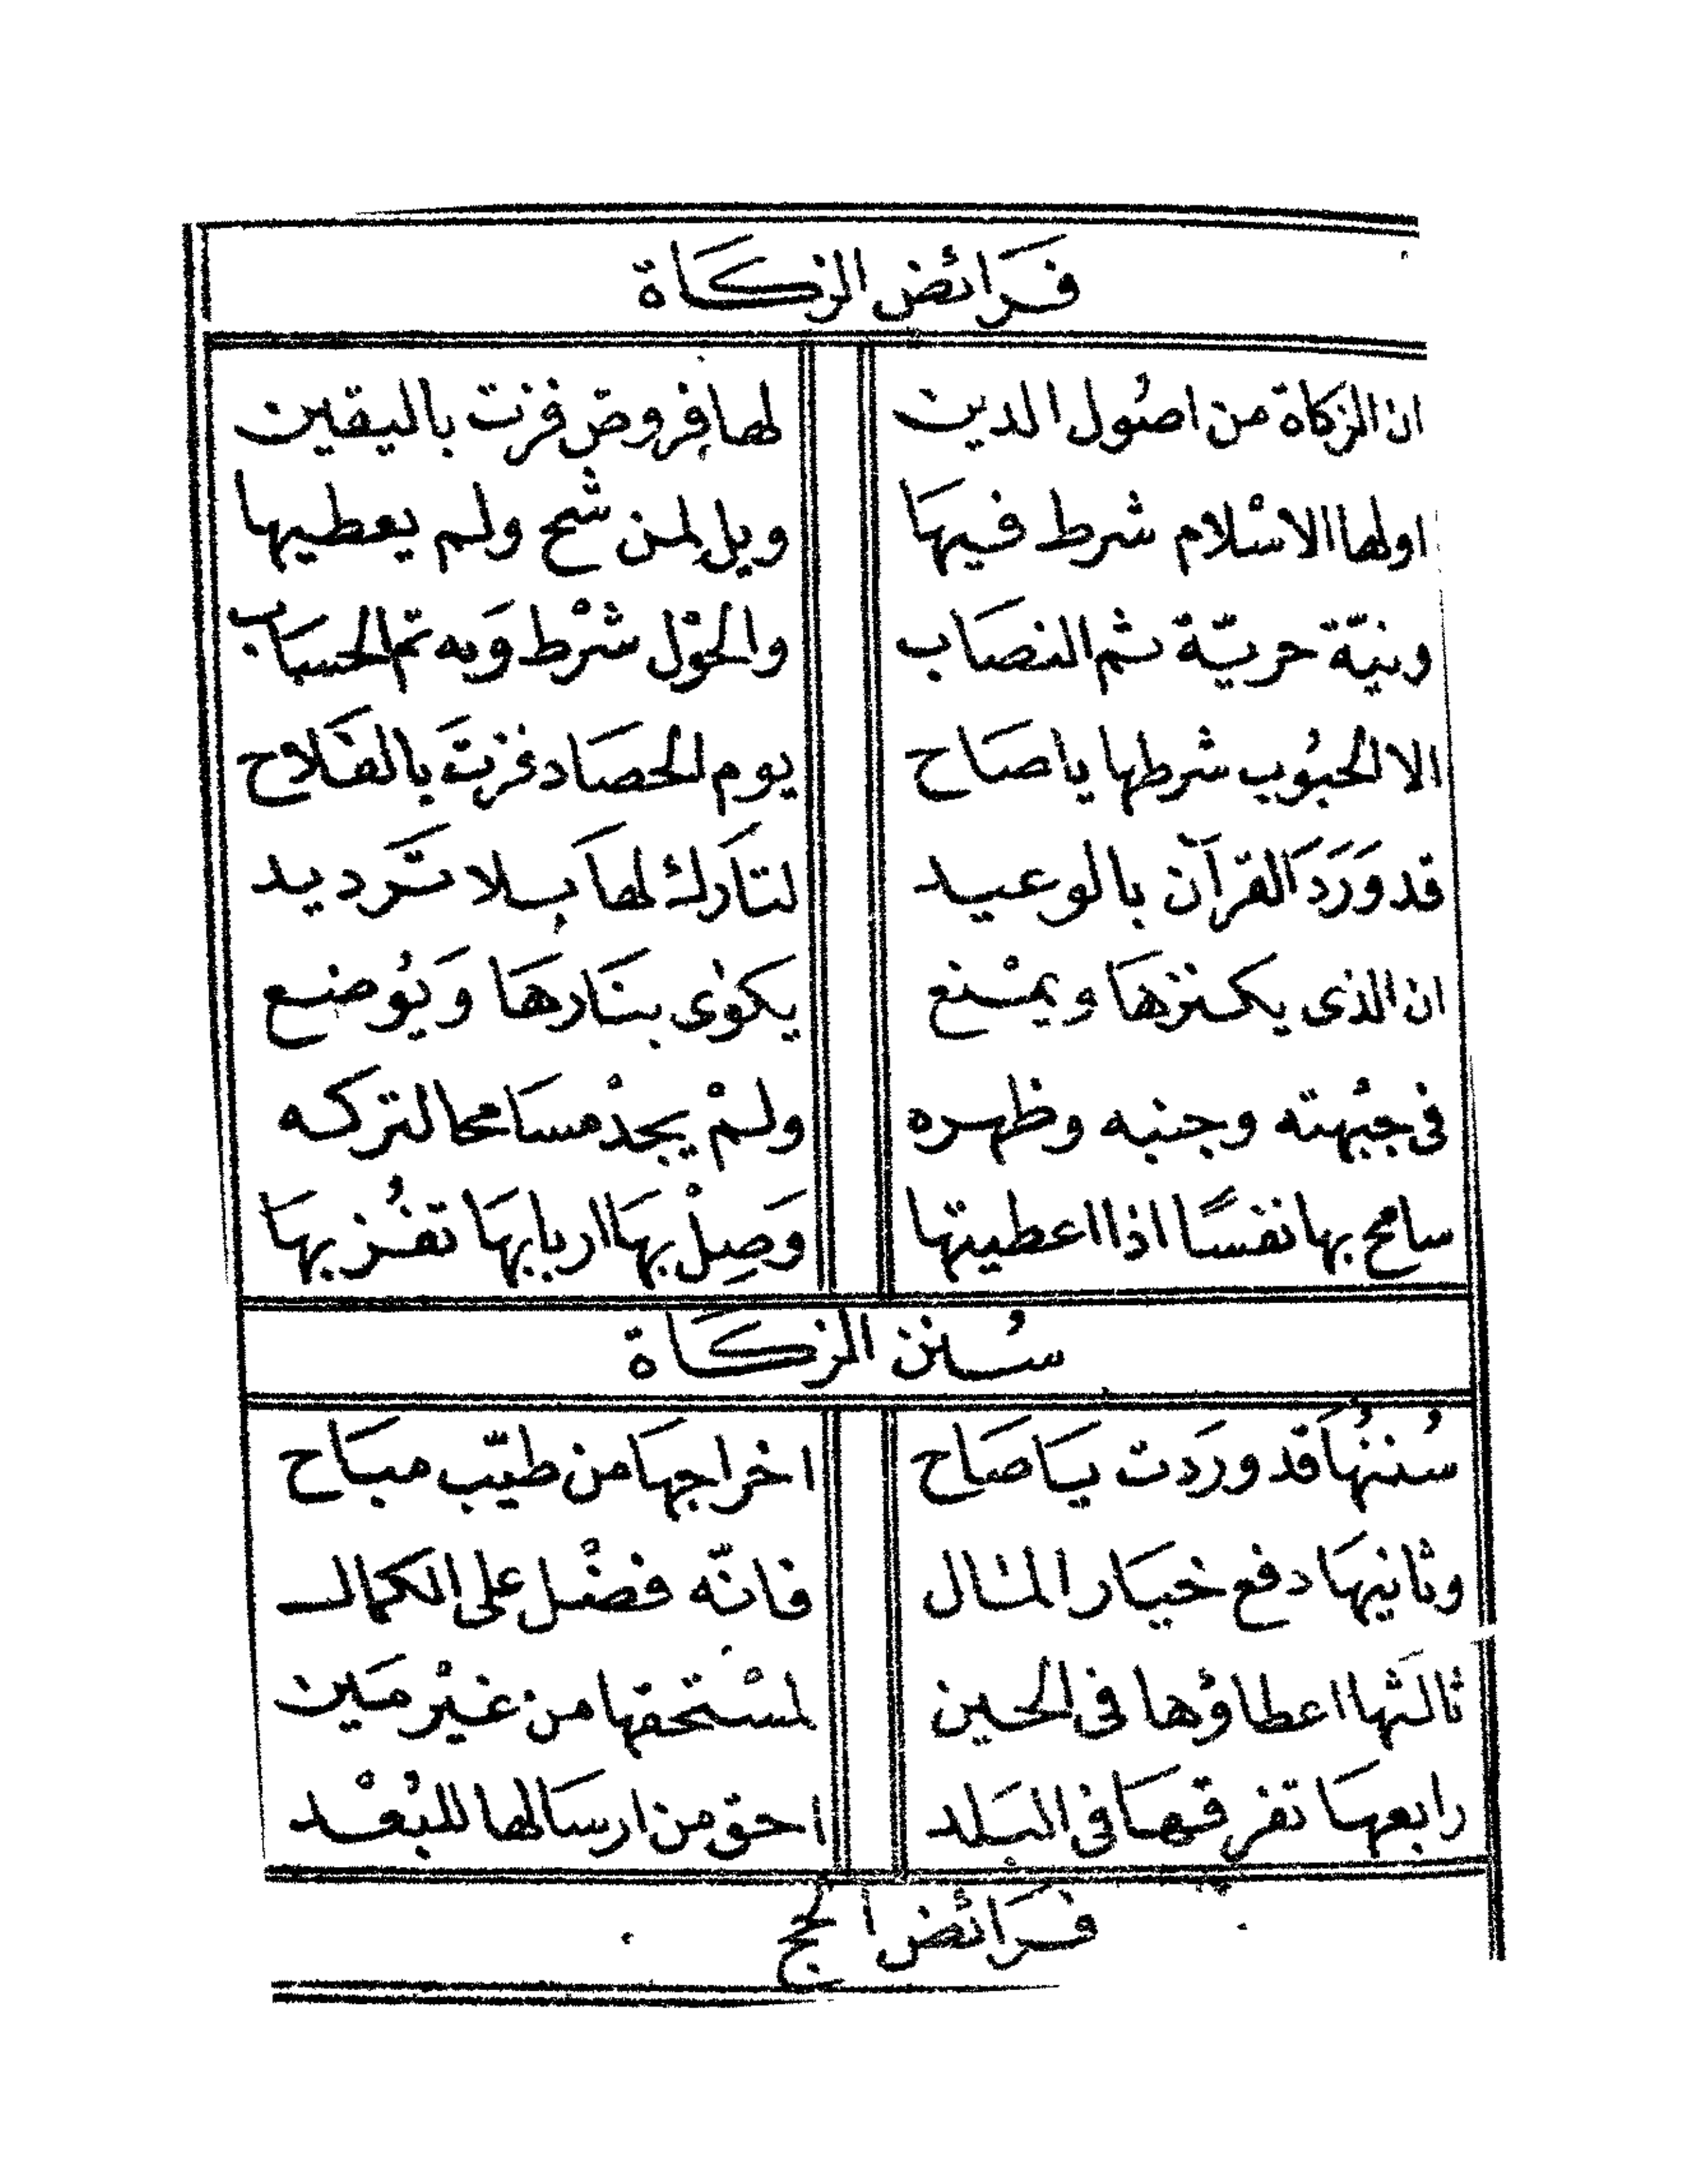 فَرَائض الزكَاة
ان الزكاة من اصُول الدين لها فروض فزت باليقين
اولها الاسْلام شرط فيهَا ويل لمن شُح ولم يعطيها
ونيّة حريّة ثم النصَاب والحوْل شرْط وَبه تم الحسَاب
الا الحبُوب شرطها ياصَاح يوم الحصَاد فزتَ بالفَلاح
قد وَرَدَ القرآن بالوعيد لتَارك لهَا بلا تَرديد
ان الذى يكنزهَا ويمْنع يكوٰى بنَارهَا وَيُوضع
فى جبْهته وجنبه وظهره ولمْ يجدْ مسَامحا لتركه
سامح بها نفسًا اذا اعطيتها وَصِلْ بهَا اربابهَا تفُز بهَا
سُنن الزكَاة
سُننُهَا قد ورَدت يَاصَاح اخراجهَا من طيّب مبَاح
وثانيهَا دفع خيَار المال فانّه فضْل على الكمال
ثالثَها اعطاؤها فى الحين لمسْتحقها من غيْر مَين
رابعهَا تفرقهَا فى البَلد احق من ارسَالها للبُعْد
فَرَائض الحج